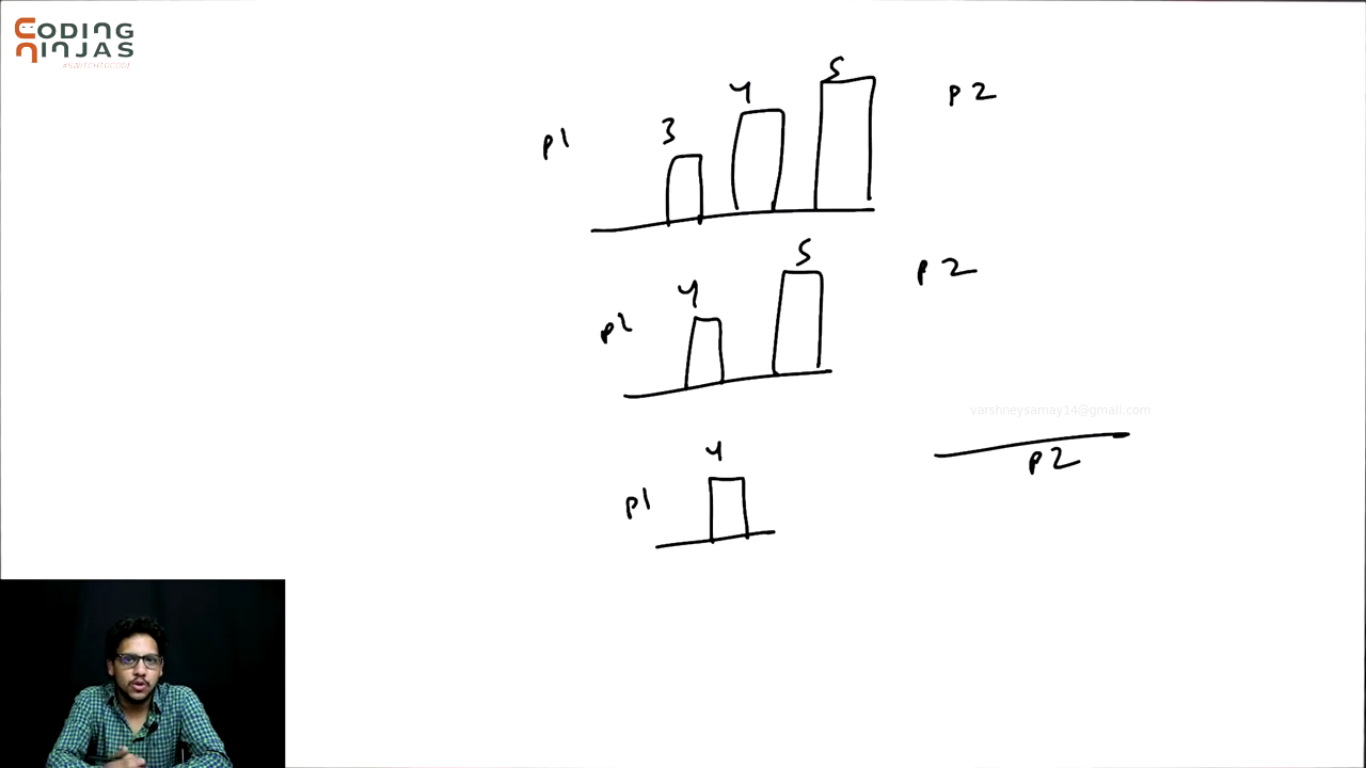 CODING
NINJAS
#SWITCHTOCODE
5
4
P2
3
P1
5
P2
4
P2
varshneysamay14@gmail.com
4
P2
P1